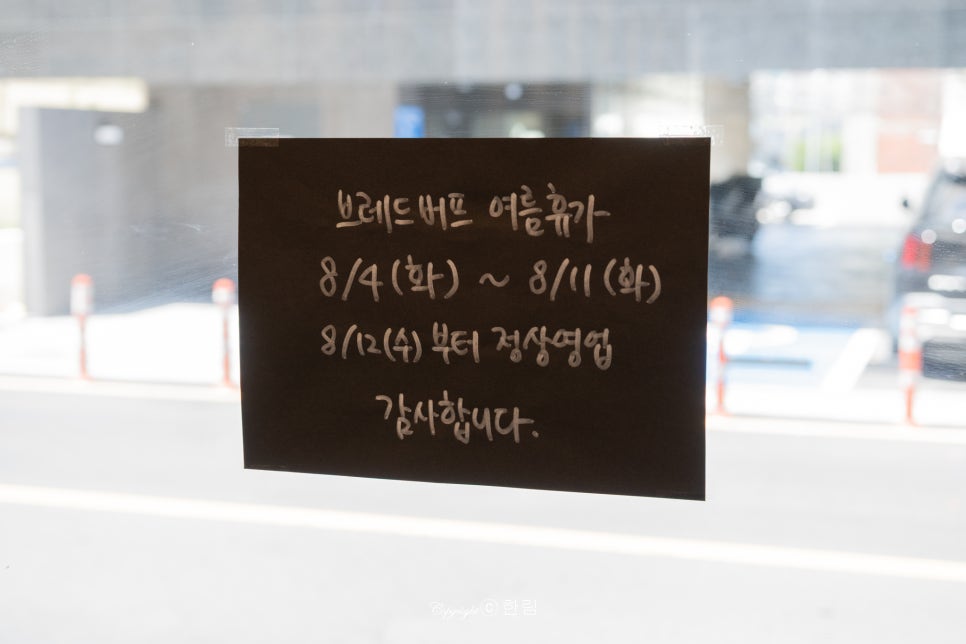 브레드버프 여름휴가
8/4(화) ~ 8/11(화)
8/12(수)부터 정상영업
감사합니다.
Copyright ⓒ 한림